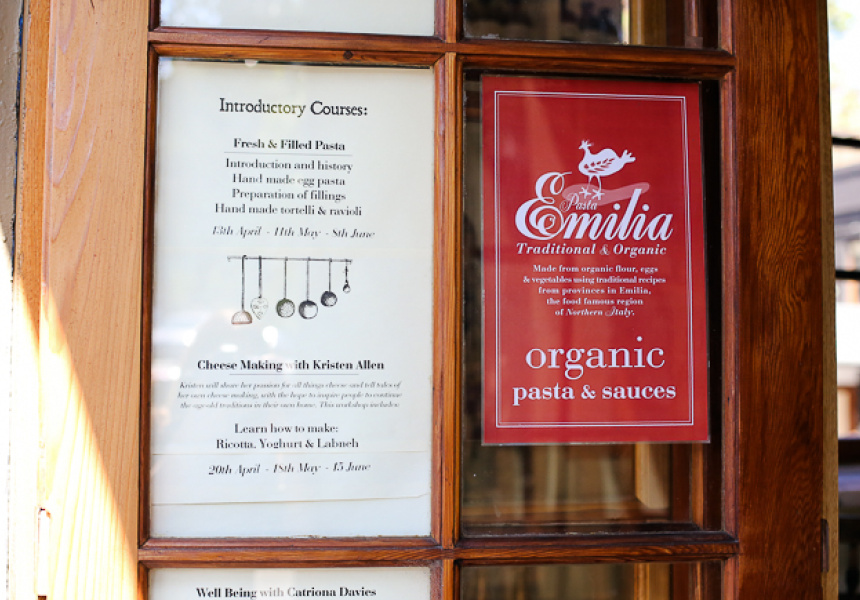 Introductory Courses:
Fresh & Filled Pasta
Introduction and history
Hand made egg pasta
Preparation of fillings
Hand made tortelli & ravioli
13th April - 11th May - 8th June
Cheese Making with Kristen Allen
Kristen will share her passion for all things cheese and tell tales of
her own cheese making, with the hope to inspire people to continue
the age-old traditions in their own home. This workshop includes:
Learn how to make:
Ricotta, Yoghurt & Labneh
20th April - 18th May - 15 June
Well Being with Catriona Davies
Pasta
Emilia
Traditional & Organic
Made from organic flour, eggs
& vegetables using traditional recipes
from provinces in Emilia,
the food famous region
of Northern Italy.
organic
pasta & sauces